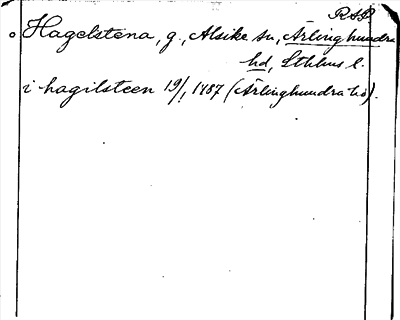 R.S.P.
Hagelstena, g., Alsike sn, Ärlinghundra
hd, Sthlms l.
i hagilsteen 19/1 1487 (Ärlinghundra hd).